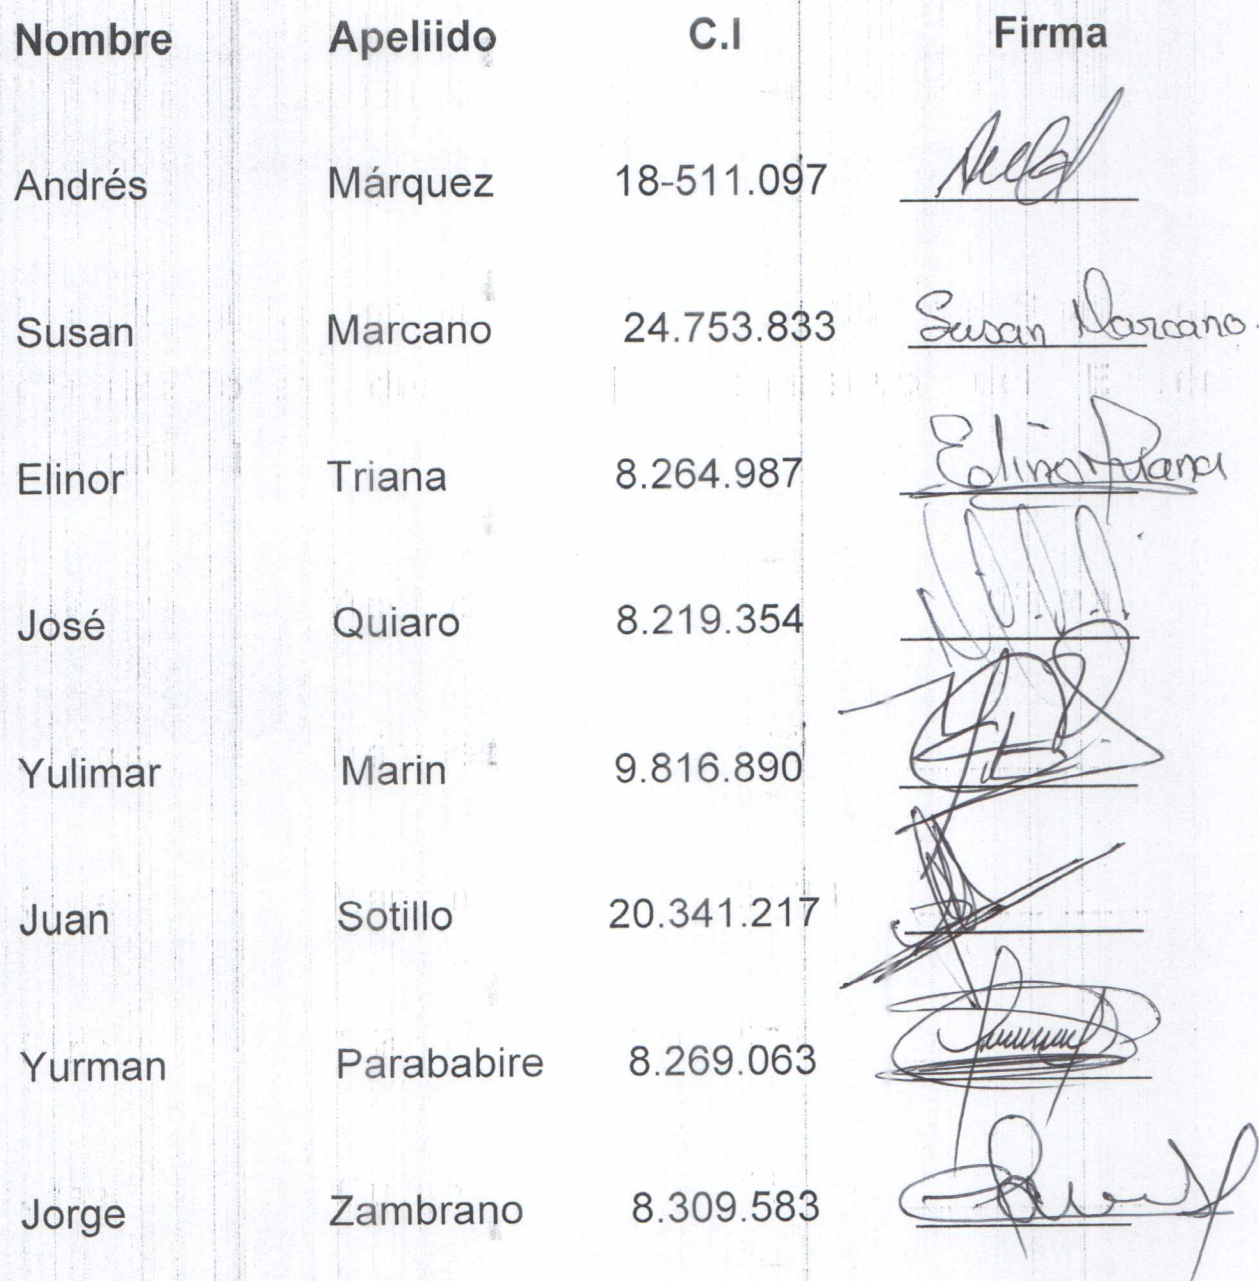 Nombre Apeliido C.I Firma
Andrés Márquez 18-511.097
Susan Marcano 24.753.833 Susan Marcano.
Elinor Triana 8.264.987 Elinor Triana
José Quiaro 8.219.354
Yulimar Marin 9.816.890
Juan Sotillo 20.341.217
Yurman Parababire 8.269.063
Jorge Zambrano 8.309.583